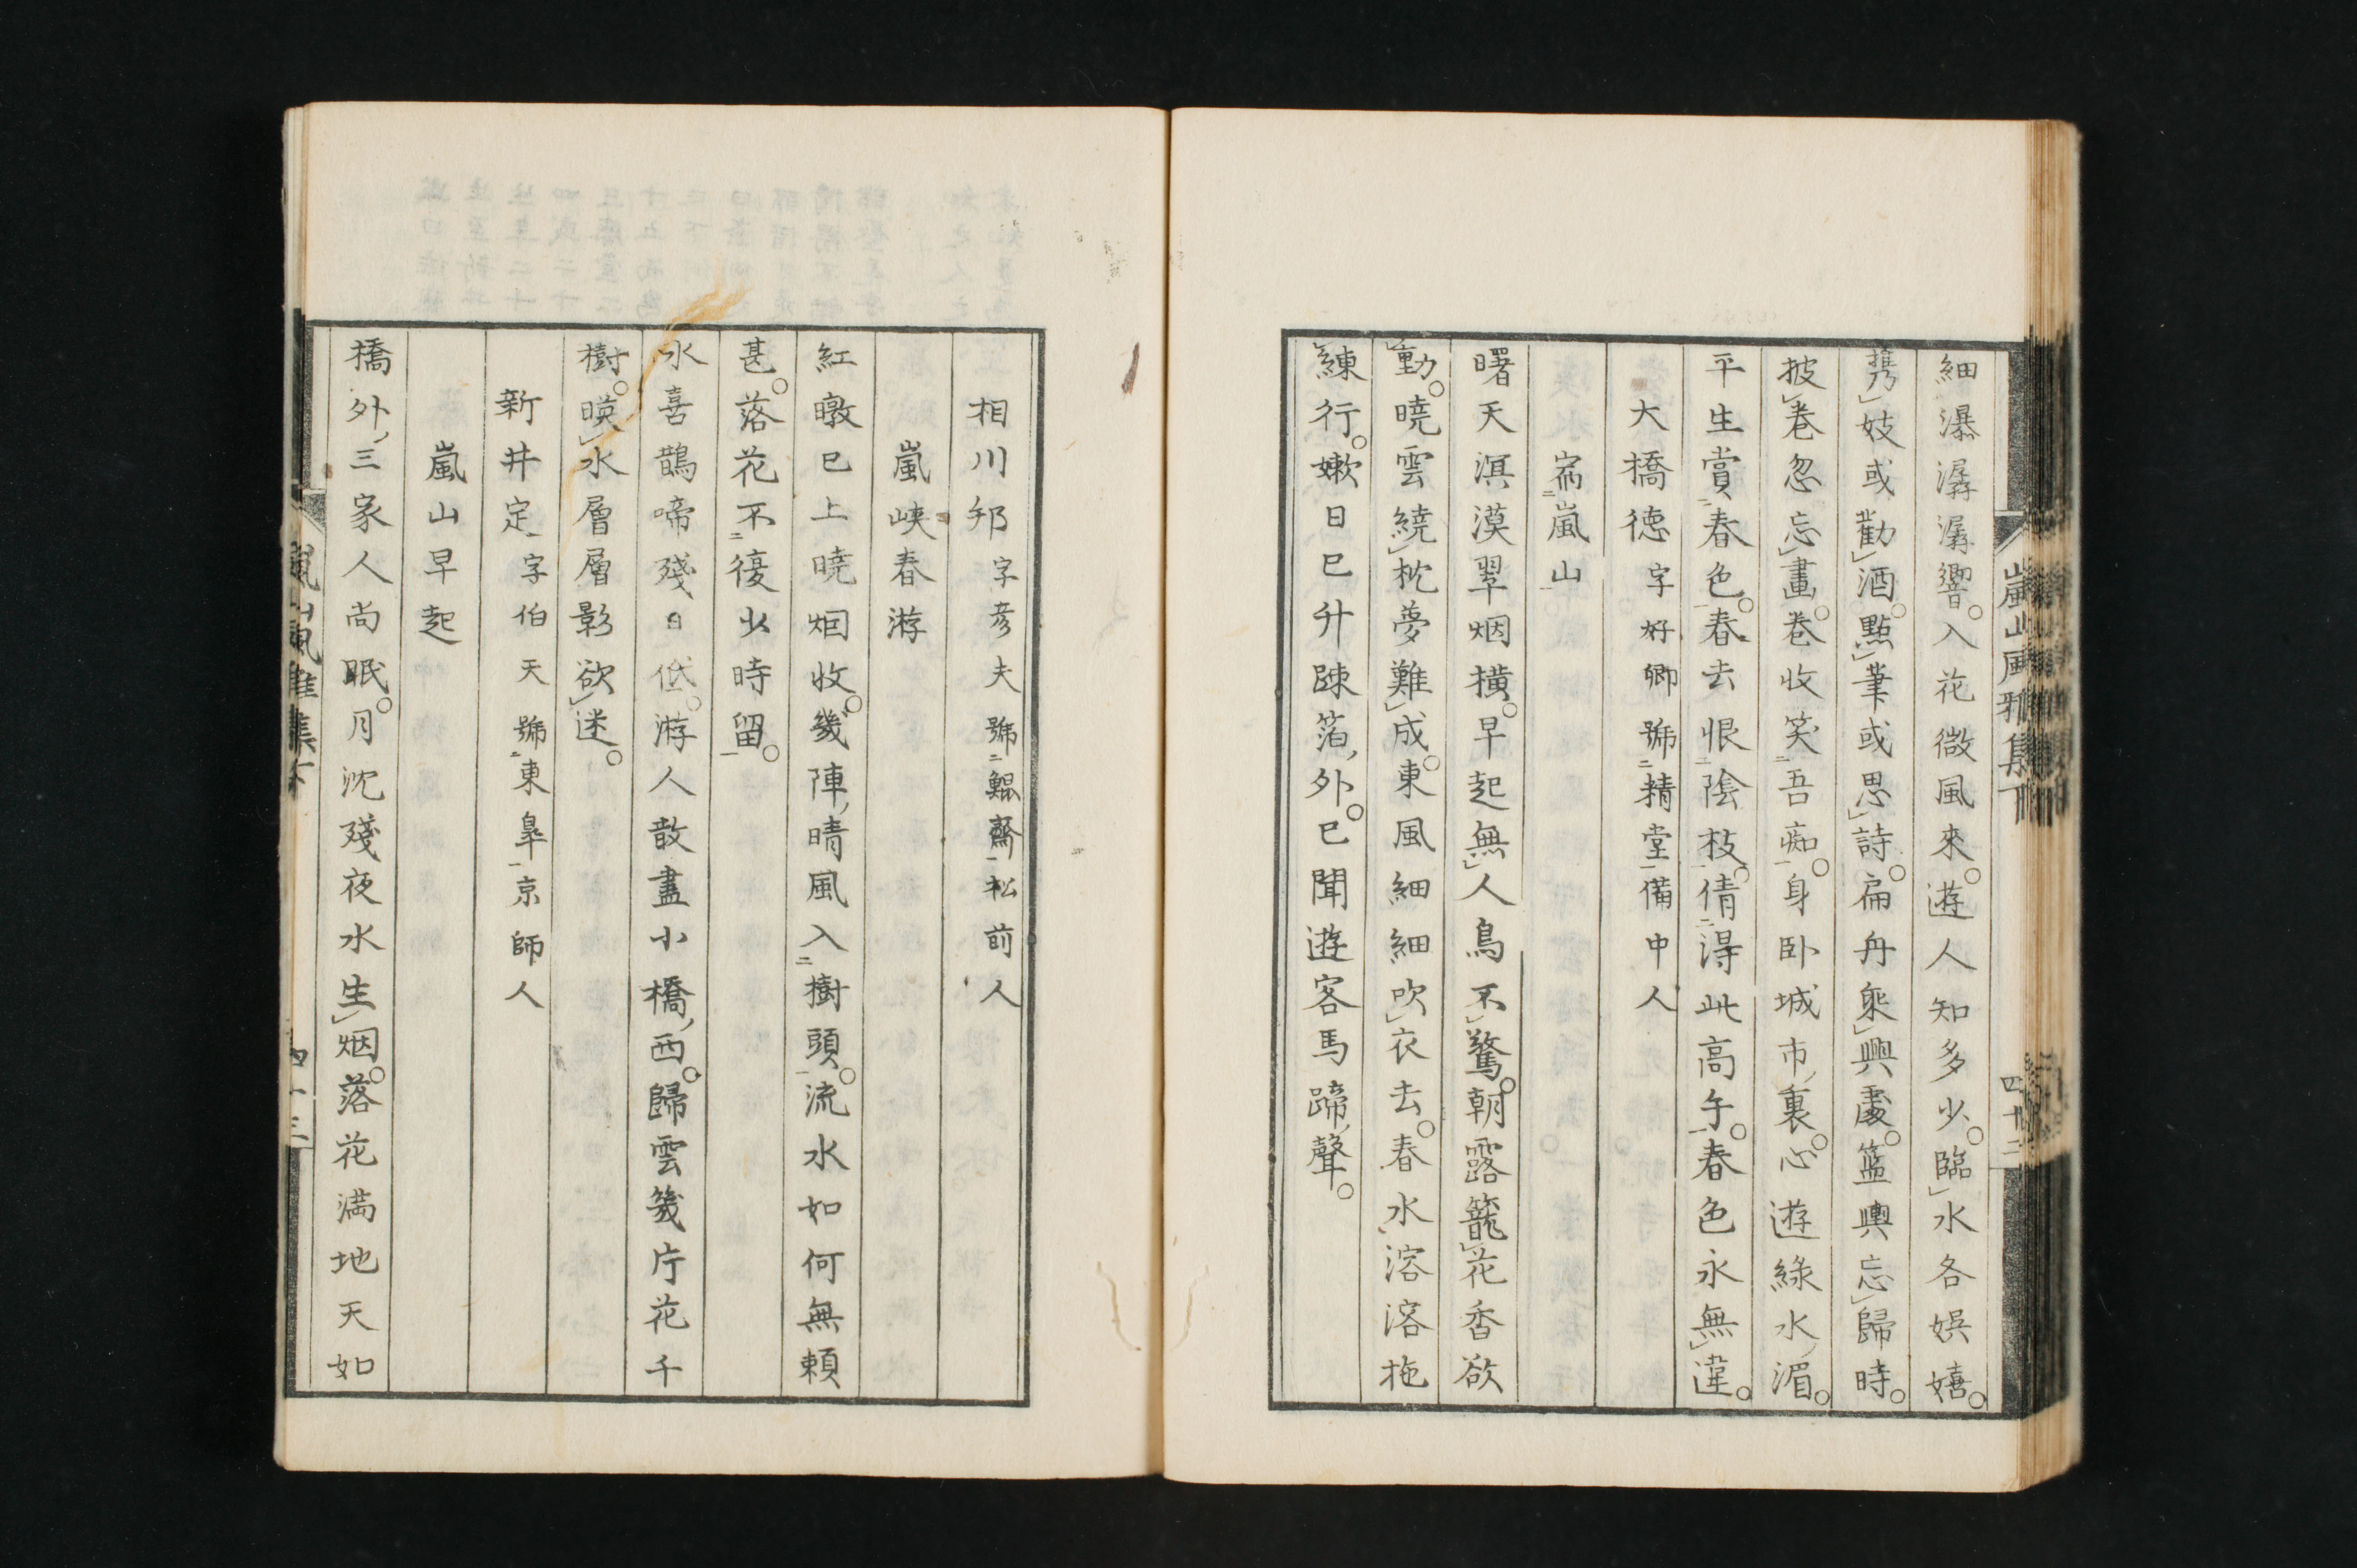 嵐山風雅集下
四十二
細瀑潺潺響。入花微風來。遊人知多少。臨水各娯嬉。
携妓或勸酒。點筆或思詩。扁舟乘興處。籃輿忘歸時。
披巻忽忘畫。巻收笑吾痴。身臥城市裏。心遊綠水湄。
平生賞春色。春去恨陰枝。倩得此高手。春色永無違。
大橋徳字好卿號精堂備中人
嵐山
曙天溟漠翠烟橫。早起無人鳥不驚。朝露籠花香欲
動。曉雲繞枕夢難成。東風細細吹衣去。春水溶溶拖
練行。嫩日已升疎箔外。已聞遊客馬蹄聲。
相川邦字彦夫號鯤齋松前人
嵐峡春游
紅暾已上曉烟收。幾陣晴風入樹頭。流水如何無賴
甚。落花不復少時留。
水喜鵲啼殘日低。游人散盡小橋西。歸雲幾片花千
樹。暎水層層影欲迷。
新井定字伯天號東皐京師人
嵐山早起
橋外三家人尚眠。月沈殘夜水生烟。落花満地天如
嵐山風雅集下
四十三